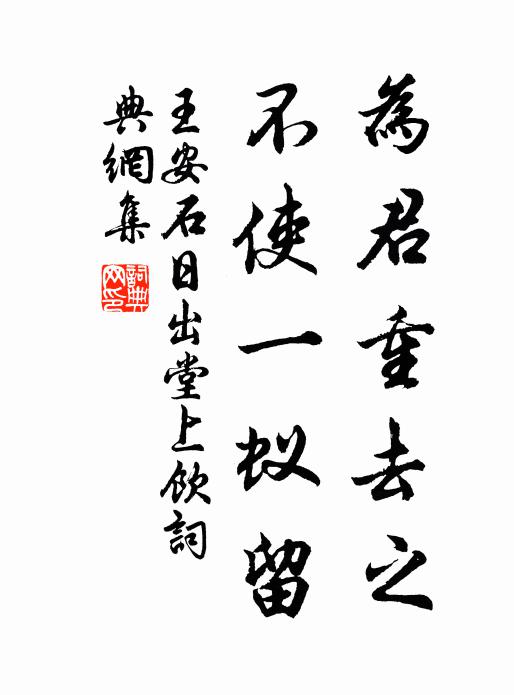 為君重去之
不使一蚁留
王安石日出堂上飲詞
典網集
詞典網印